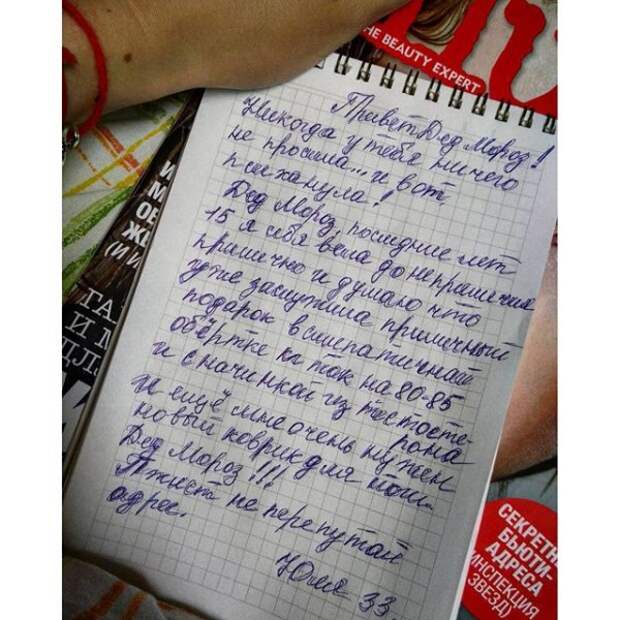 THE BEAUTY EXPERT
Привет Дед Мороз!
Никогда у тебя ничего
не просила... и вот,
психанула!
Дед Мороз, последние лет
15 я себя вела до неприличия
прилично и думаю что
уже заслужила приличный
подарок в симпатичной
обёртке кг так на 80-85
и с начинкой из тестосте-
рона
И ещё мне очень нужен
новый коврик для
Дед Мороз!!!
не перепутай
адрес.
Юля 33
СЕКРЕТН
БЬЮТИ-
АДРЕСА
(ИНСПЕКЦИЯ
ЗВЕЗД)